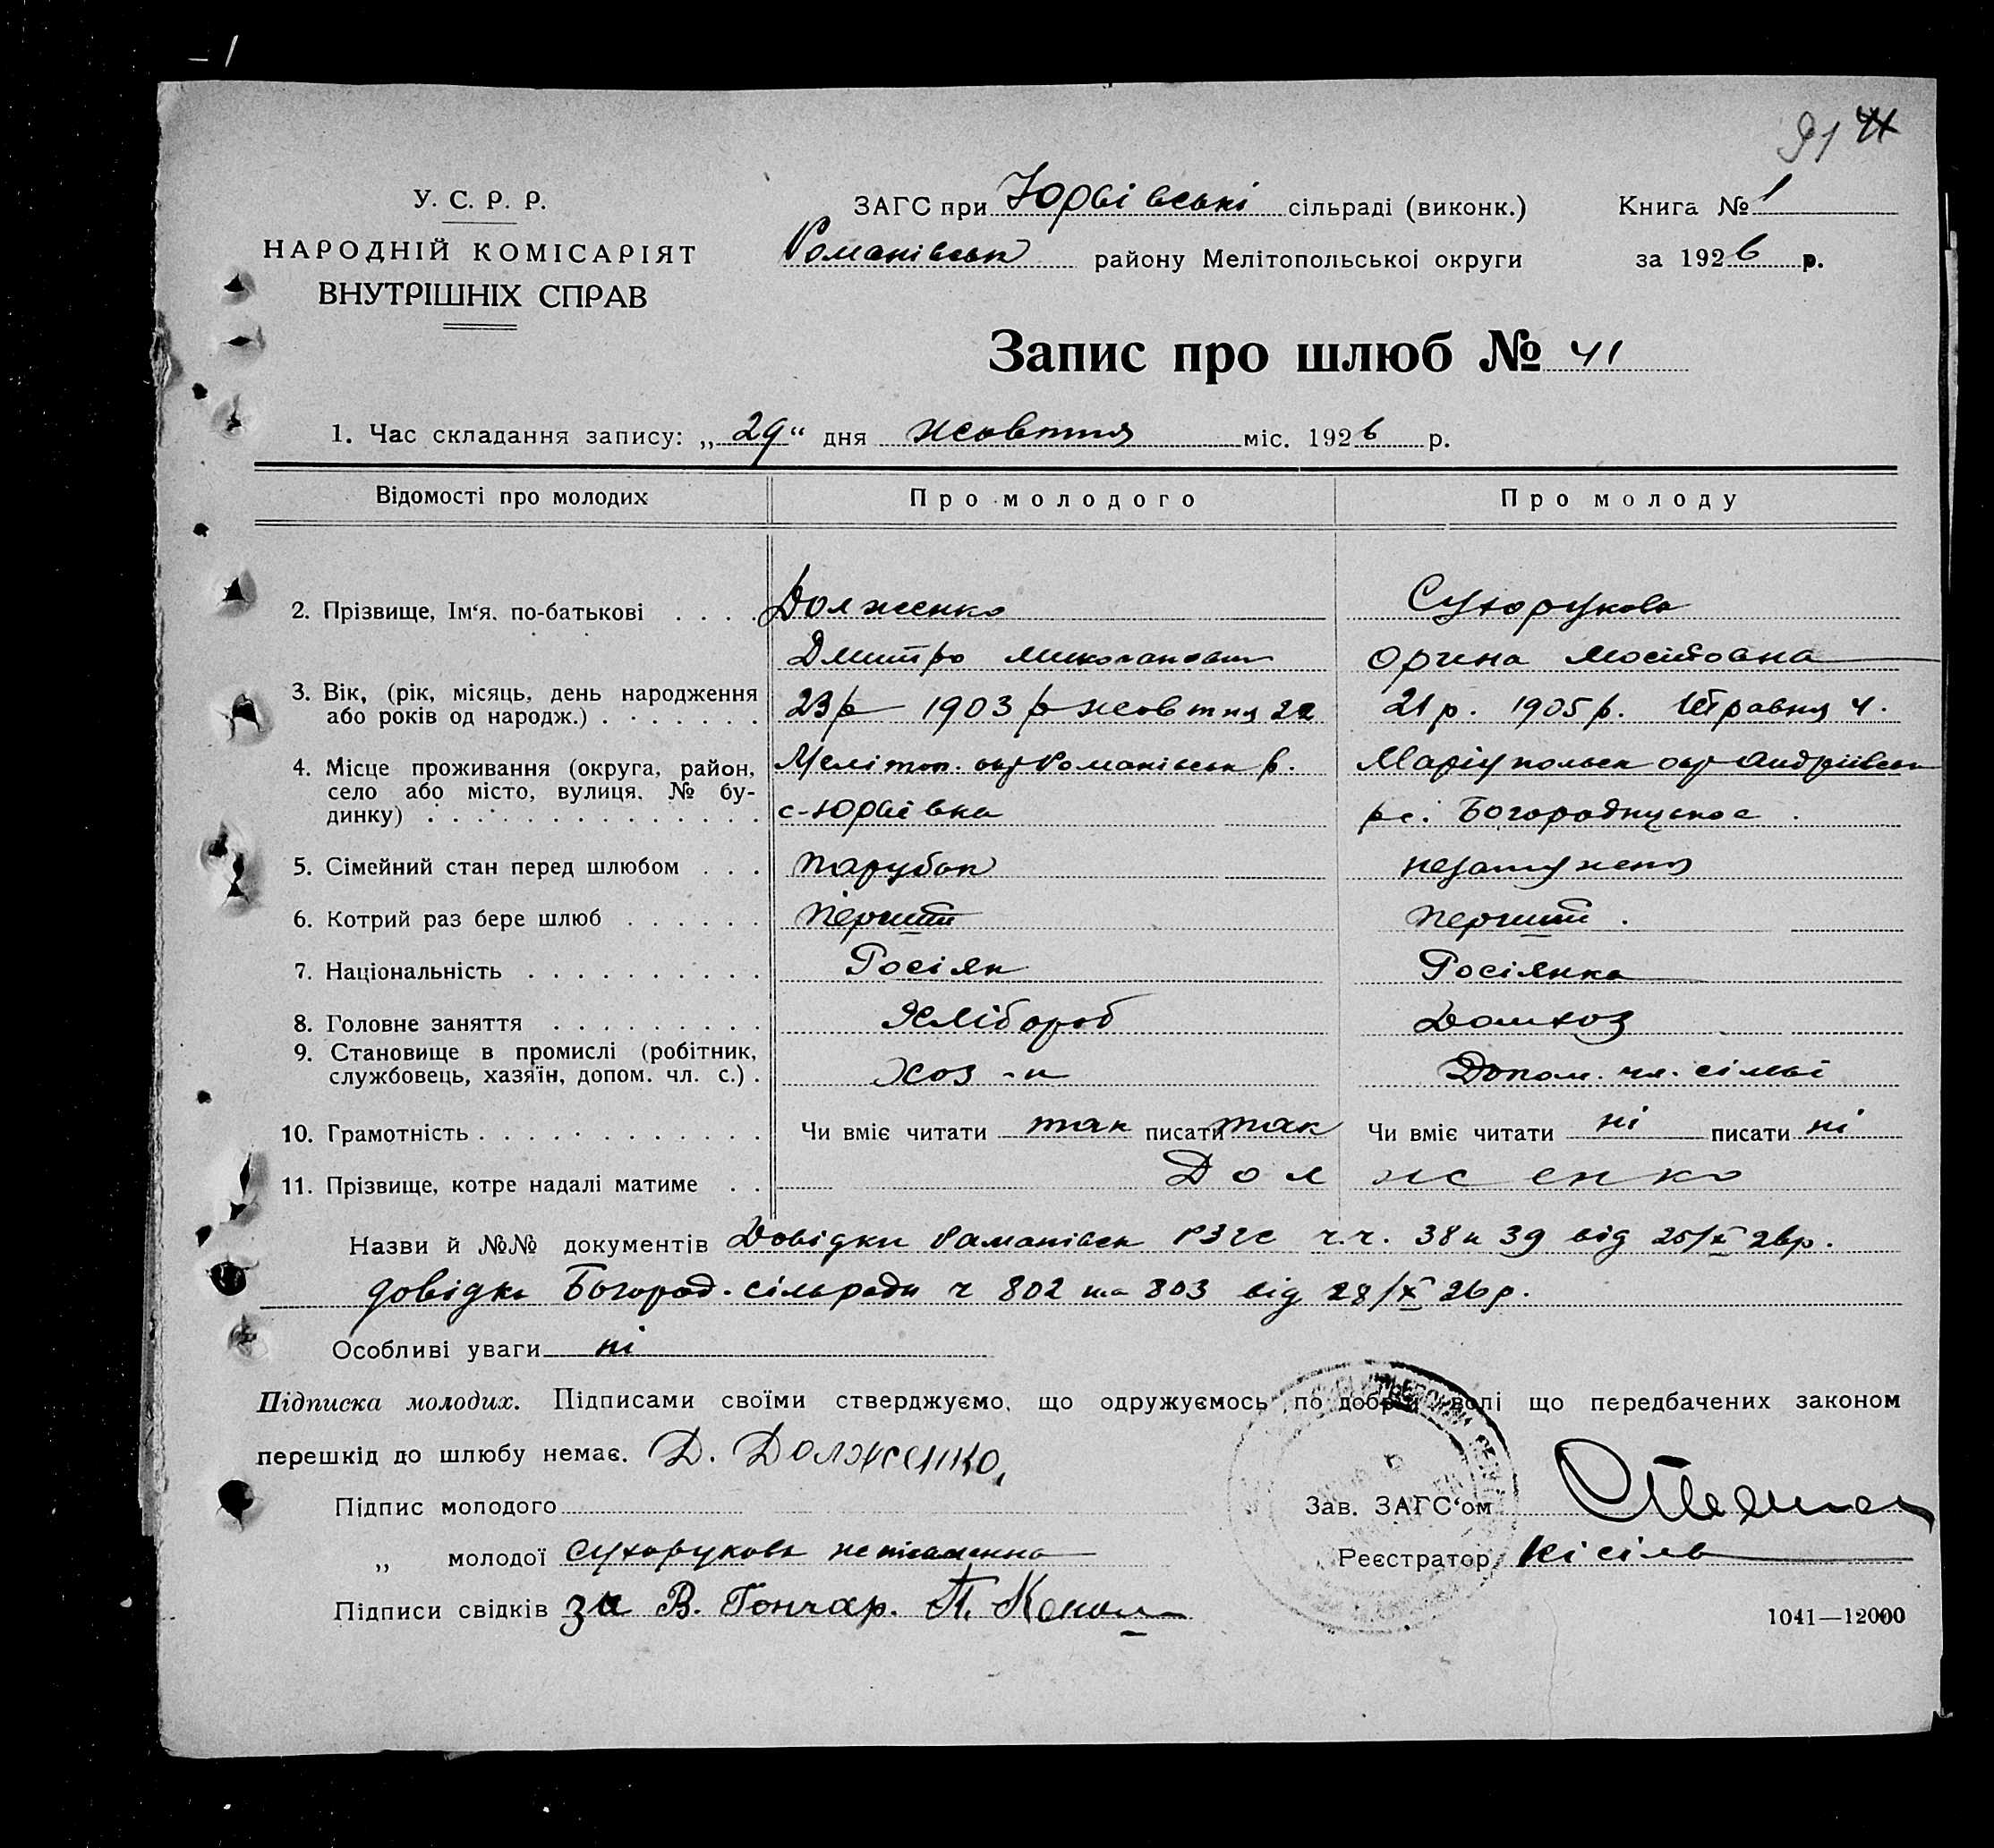 91 41
У. С. Р. Р.
НАРОДНІЙ КОМІСАРІЯТ
ВНУТРІШНІХ СПРАВ
ЗАГС при Юрвівські сільраді (виконк.) Книга № 1
Романівськ району Мелітопольської округи за 1926 р.
Запис про шлюб № 41
1. Час складання запису: „29“ дня жовтня міс. 1926 р.
Відомості про молодих Про молодого Про молоду
2. Прізвище, Ім‘я, по-батькові Долженко Сухорукова
Дмитро Миколанович Орина
3. Вік, (рік, місяць, день народження або років од народж.) 23 р 1903 р жовтня 22 21 р. 1905 р. Травня 4.
4. Місце проживання (округа, район, село або місто, вулиця, № будинку) Мелітоп. окр Романівськ р. Маріупольск окр Андріївськ
с-Юрвівка р с. Богородицкое.
5. Сімейний стан перед шлюбом парубок незамужня
6. Котрий раз бере шлюб перший перший.
7. Національність Росіян Росіянка
8. Головне заняття Хлібороб Домхоз
9. Становище в промислі (робітник, службовець, хазяїн, допом. чл. с.) Хоз-н Допом. чл. сімьї
10. Грамотність Чи вміє читати так писати так Чи вміє читати ні писати ні
11. Прізвище, котре надалі матиме Долженко
Назви й №№ документів Довідки Раманівск РЗГС ч.ч. 38 и 39 від 25/X 26р.
довідки Богород. сільради ч 802 та 803 від 28/X 26р.
Особливі уваги ні
Підписка молодих. Підписами своїми стверджуємо, що одружуємось по добрій волі що передбачених законом
перешкід до шлюбу немає. Д. Долженко,
Підпис молодого Зав. ЗАГС‘ом
„ молодої Сухорукова неписменна Реєстратор Кісіль
Підписи свідків за В. Гончар. П.
1041—12000